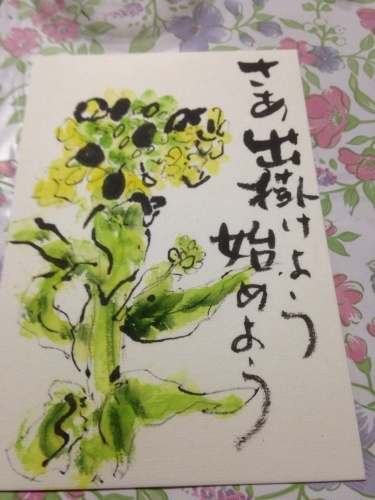 さあ出掛けよう
始めよう